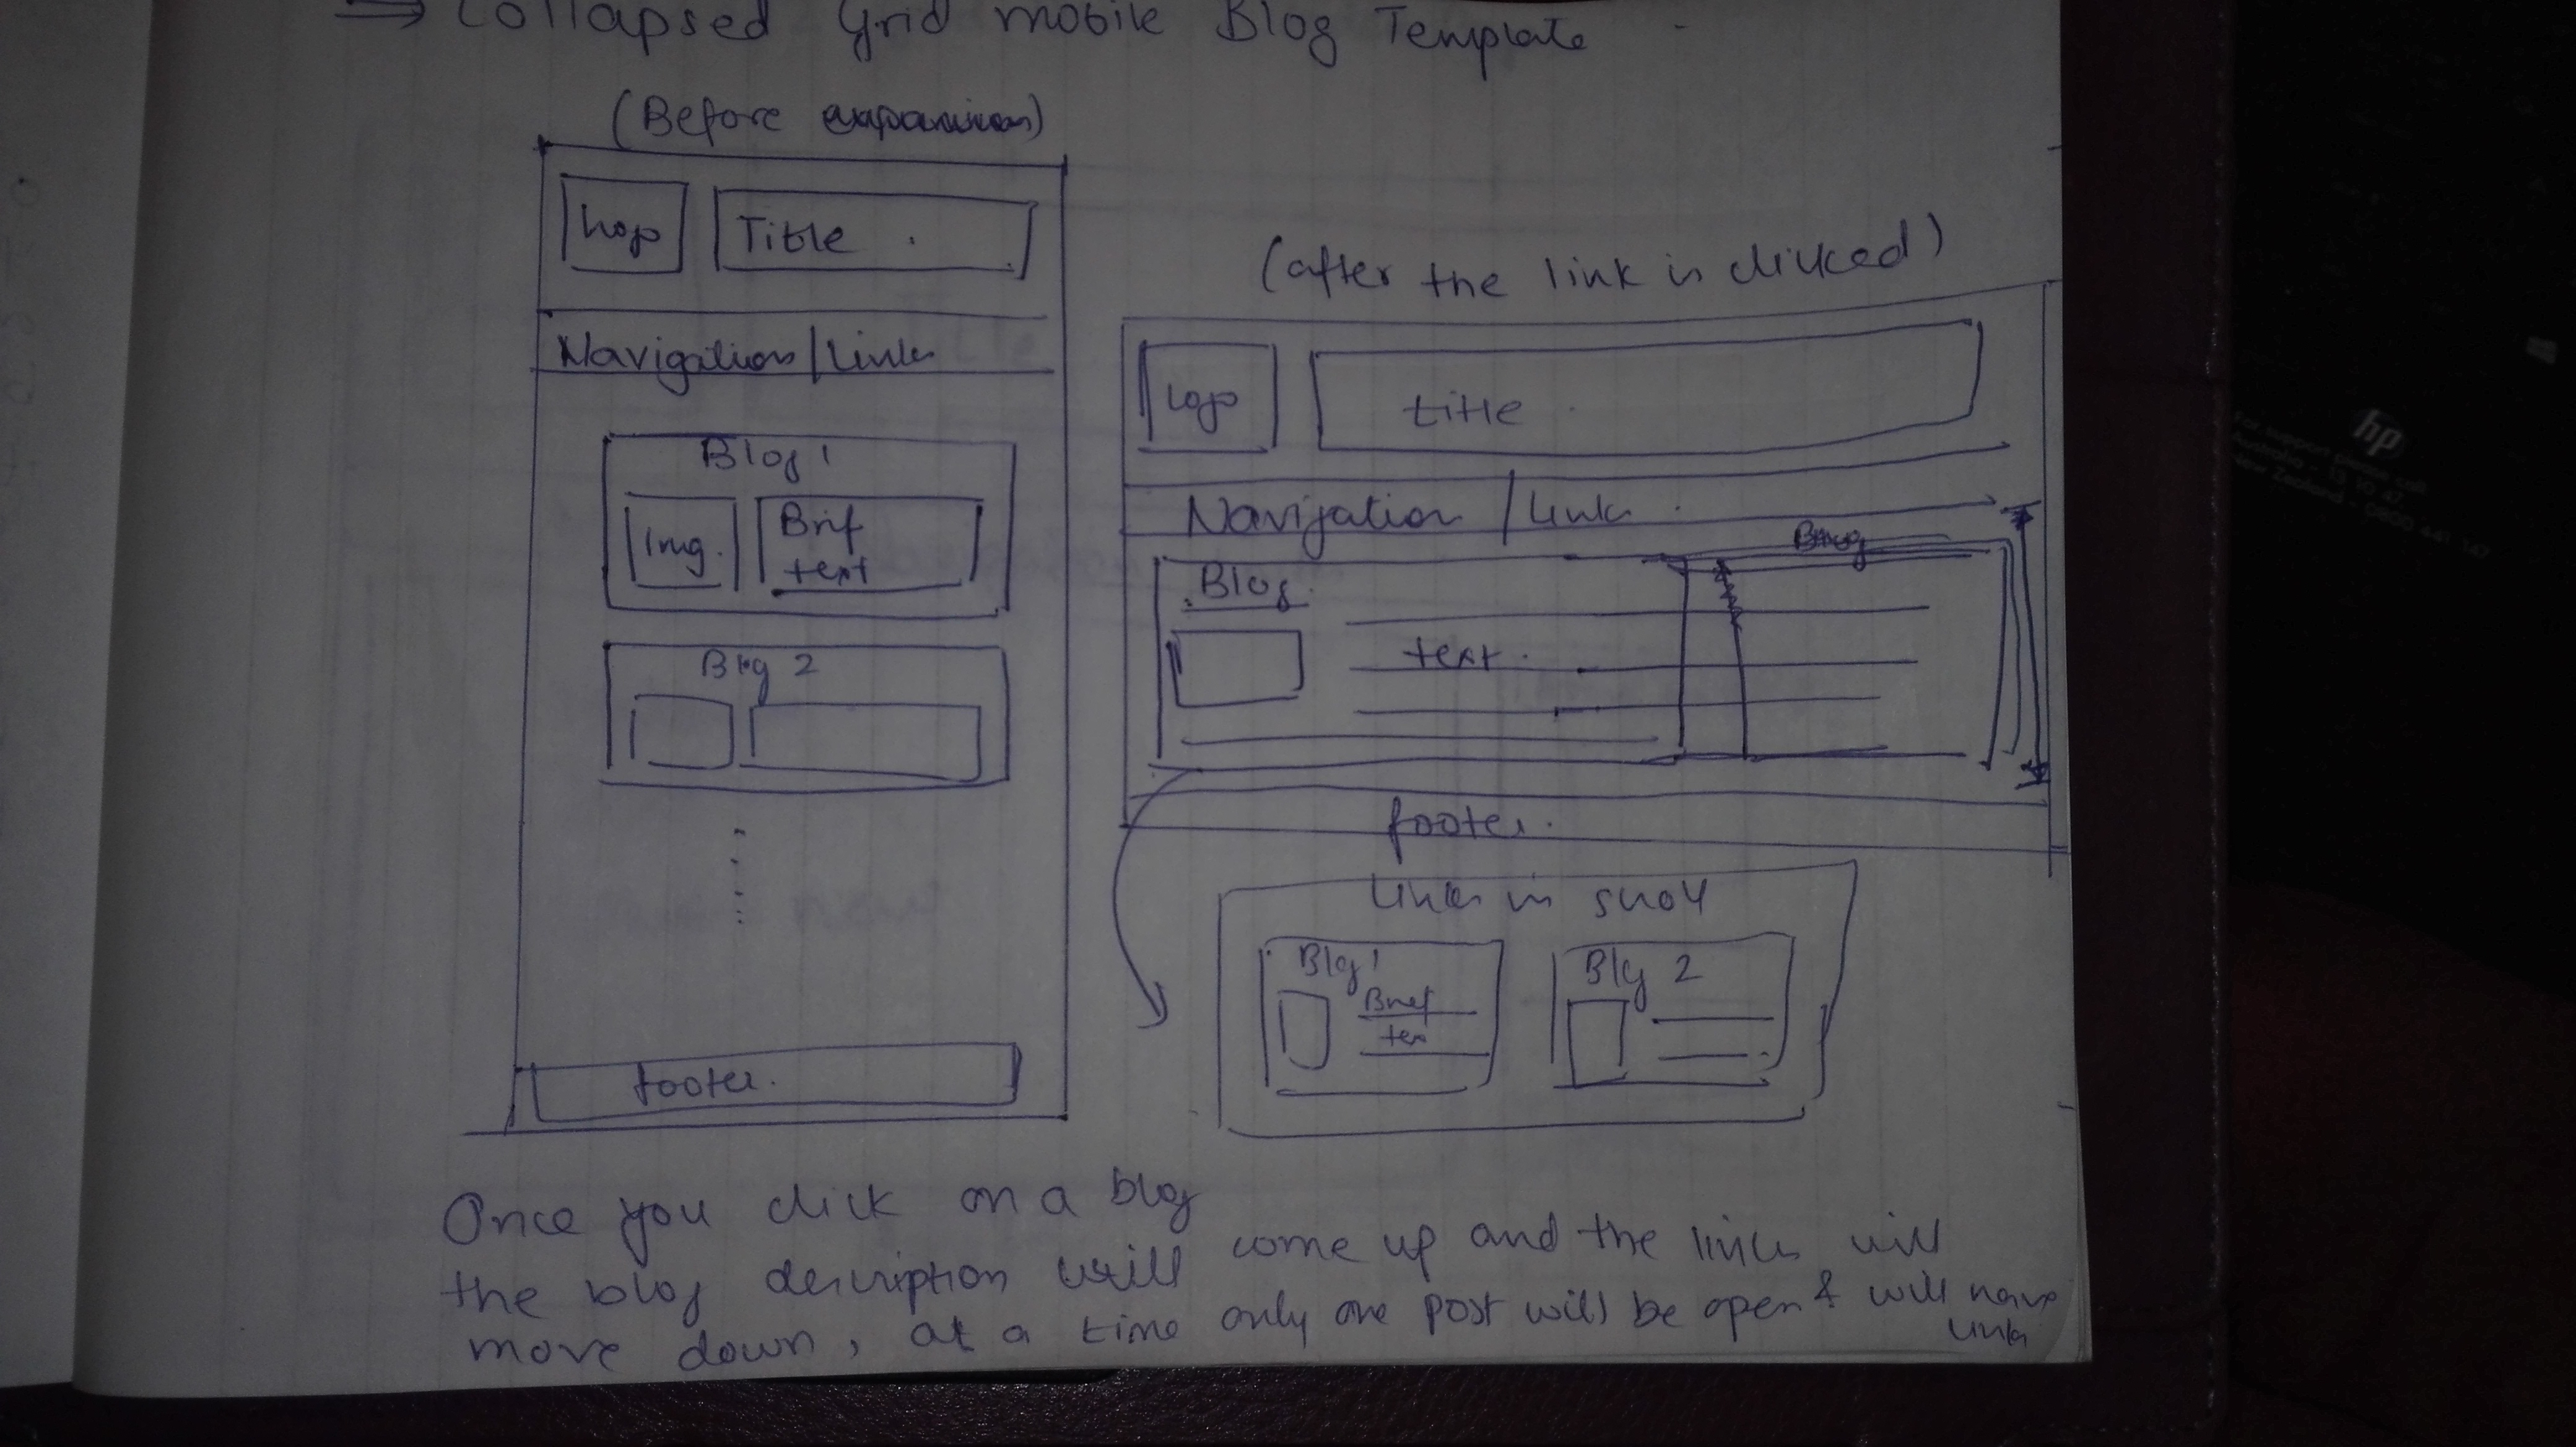 ⇒ Collapsed Grid mobile Blog Template
(Before expansion)
Logo
Title
Navigation/Links
Blog 1
Img.
Brif
text
Blog 2
footer.
(after the link is clicked)
Logo
title
Navigation/Links
Blog
text.
footer.
Links in
Blog 1
Brief
tex
Blog 2
Once you click on a blog
the blog description will come up and the links will
move down, at a time only one post will be open & will have
links
hp
For support please call
Australia - 13 10 47
New Zealand - 0800 441 147